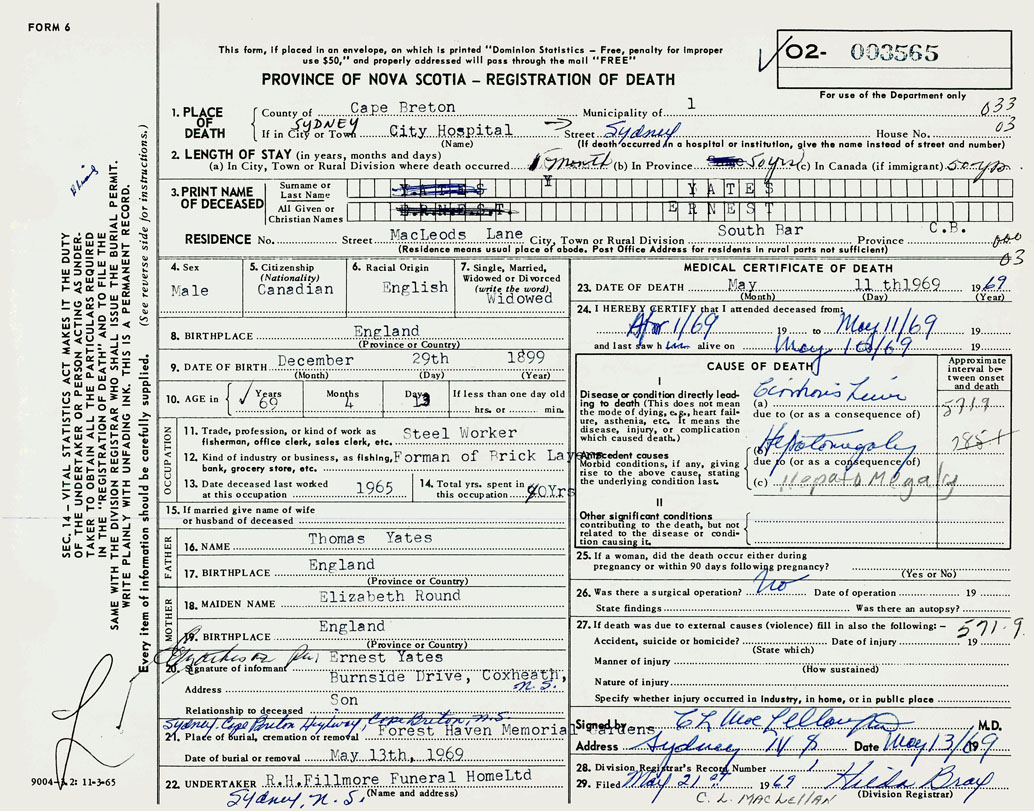 FORM 6
This form, if placed in an envelope, on which is printed "Dominion Statistics – Free, penalty for improper
use $50," and properly addressed will pass through the mail "FREE"
PROVINCE OF NOVA SCOTIA – REGISTRATION OF DEATH
O2- 003565
For use of the Department only
1. PLACE OF DEATH
County of Cape Breton Municipality of 1 033
SYDNEY
If in City or Town City Hospital Street Sydney House No. 03
(Name) (If death occurred in a hospital or institution, give the name instead of street and number)
2. LENGTH OF STAY (in years, months and days)
(a) In City, Town or Rural Division where death occurred 1 month (b) In Province 50 yrs (c) In Canada (if immigrant) 50 yrs
3. PRINT NAME OF DECEASED
Surname or Last Name YATES Y YATES
All Given or Christian Names ERNEST ERNEST
RESIDENCE No. Street MacLeods Lane City, Town or Rural Division South Bar Province C.B.
(Residence means usual place of abode. Post Office Address for residents in rural parts not sufficient)
03
4. Sex Male
5. Citizenship (Nationality) Canadian
6. Racial Origin English
7. Single, Married, Widowed or Divorced (write the word) Widowed
8. BIRTHPLACE England
(Province or Country)
9. DATE OF BIRTH December 29th 1899
(Month) (Day) (Year)
10. AGE in Years 69 Months 4 Days 13 If less than one day old hrs. or min.
OCCUPATION
11. Trade, profession, or kind of work as fisherman, office clerk, sales clerk, etc. Steel Worker
12. Kind of industry or business, as fishing, bank, grocery store, etc. Forman of Brick Layers
13. Date deceased last worked at this occupation 1965
14. Total yrs. spent in this occupation 40Yrs
15. If married give name of wife or husband of deceased
FATHER
16. NAME Thomas Yates
17. BIRTHPLACE England
(Province or Country)
MOTHER
18. MAIDEN NAME Elizabeth Round
19. BIRTHPLACE England
(Province or Country)
20. Signature of informant Ernest Yates
Address Burnside Drive, Coxheath, N.S.
Relationship to deceased Son
Sydney, Cape Breton Highway, Cape Breton, N.S.
21. Place of burial, cremation or removal Forest Haven Memorial Gardens
Date of burial or removal May 13th, 1969
22. UNDERTAKER R.H.Fillmore Funeral HomeLtd
(Name and address)
Sydney, N.S.
MEDICAL CERTIFICATE OF DEATH
23. DATE OF DEATH May 11 th1969 1969
(Month) (Day) (Year)
24. I HEREBY CERTIFY that I attended deceased from:
Apr 1/69 19 to May 11/69 19
and last saw him alive on May 10/69 19
CAUSE OF DEATH
Approximate interval between onset and death
I
Disease or condition directly leading to death (This does not mean the mode of dying, e.g., heart failure, asthenia, etc. It means the disease, injury, or complication which caused death.)
(a) Cirrhosis Liver 571.9
due to (or as a consequence of)
(b) Hepatomegaly 785.1
Antecedent causes
Morbid conditions, if any, giving rise to the above cause, stating the underlying condition last.
due to (or as a consequence of)
(c) HepatoMegaly
II
Other significant conditions contributing to the death, but not related to the disease or condition causing it.
25. If a woman, did the death occur either during pregnancy or within 90 days following pregnancy?
(Yes or No)
26. Was there a surgical operation? No Date of operation 19
State findings Was there an autopsy?
27. If death was due to external causes (violence) fill in also the following: – 571.9
Accident, suicide or homicide? Date of injury 19
(State which)
Manner of injury
(How sustained)
Nature of injury
Specify whether injury occurred in industry, in home, or in public place
Signed by M.D.
Address Sydney N S Date May 13/1969
28. Division Registrar's Record Number 1
29. Filed May 21st 1969 Hilda Bray
(Division Registrar)
C. L. MACLELLAN
SEC. 14 – VITAL STATISTICS ACT MAKES IT THE DUTY
OF THE UNDERTAKER OR PERSON ACTING AS UNDER-
TAKER TO OBTAIN ALL THE PARTICULARS REQUIRED
IN THE "REGISTRATION OF DEATH" AND TO FILE THE
SAME WITH THE DIVISION REGISTRAR WHO SHALL ISSUE THE BURIAL PERMIT.
WRITE PLAINLY WITH UNFADING INK. THIS IS A PERMANENT RECORD.
Every item of information should be carefully supplied. (See reverse side for instructions.)